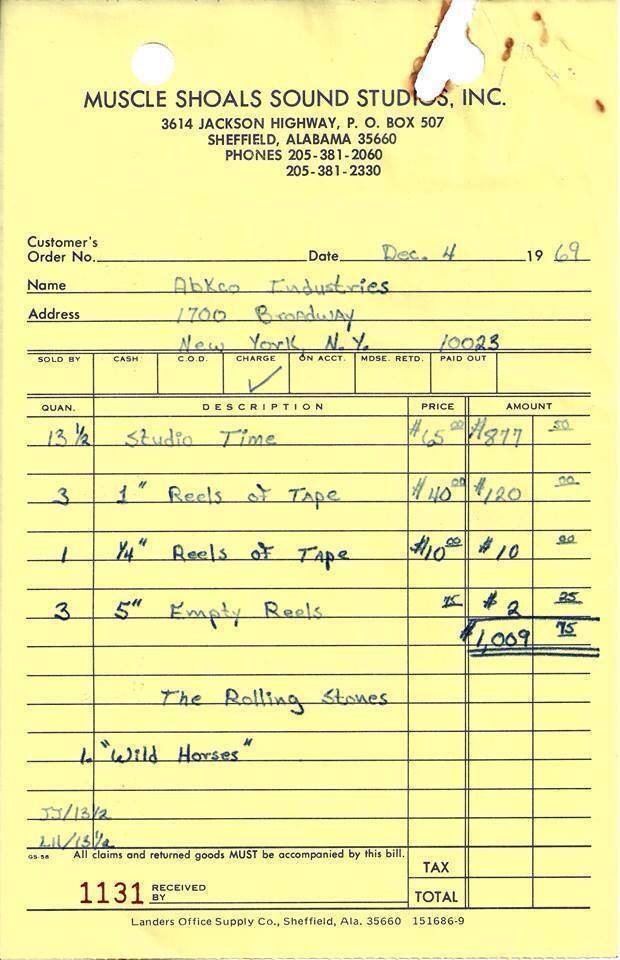 MUSCLE SHOALS SOUND STUDIOS, INC.
3614 JACKSON HIGHWAY, P. O. BOX 507
SHEFFIELD, ALABAMA 35660
PHONES 205-381-2060
205-381-2330
Customer's
Order No. Date Dec. 4 1969
Name Abkco Industries
Address 1700 Broadway
New York, N.Y. 10023
SOLD BY CASH C.O.D. CHARGE ON ACCT. MDSE. RETD. PAID OUT
✓
QUAN. DESCRIPTION PRICE AMOUNT
13 1/2 Studio Time $65 00 $877 50
3 1" Reels of Tape $40 00 $120 00
1 1/4" Reels of Tape $10 00 $10 00
3 5" Empty Reels 75 $2 25
$1,009 75
The Rolling Stones
1. "Wild Horses"
JJ/13 1/2
/13 1/2
GS-58 All claims and returned goods MUST be accompanied by this bill.
TAX
1131 RECEIVED BY
TOTAL
Landers Office Supply Co., Sheffield, Ala. 35660 151686-9